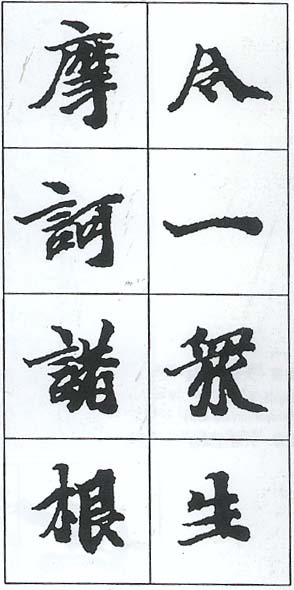 令一眾生
摩訶諸根